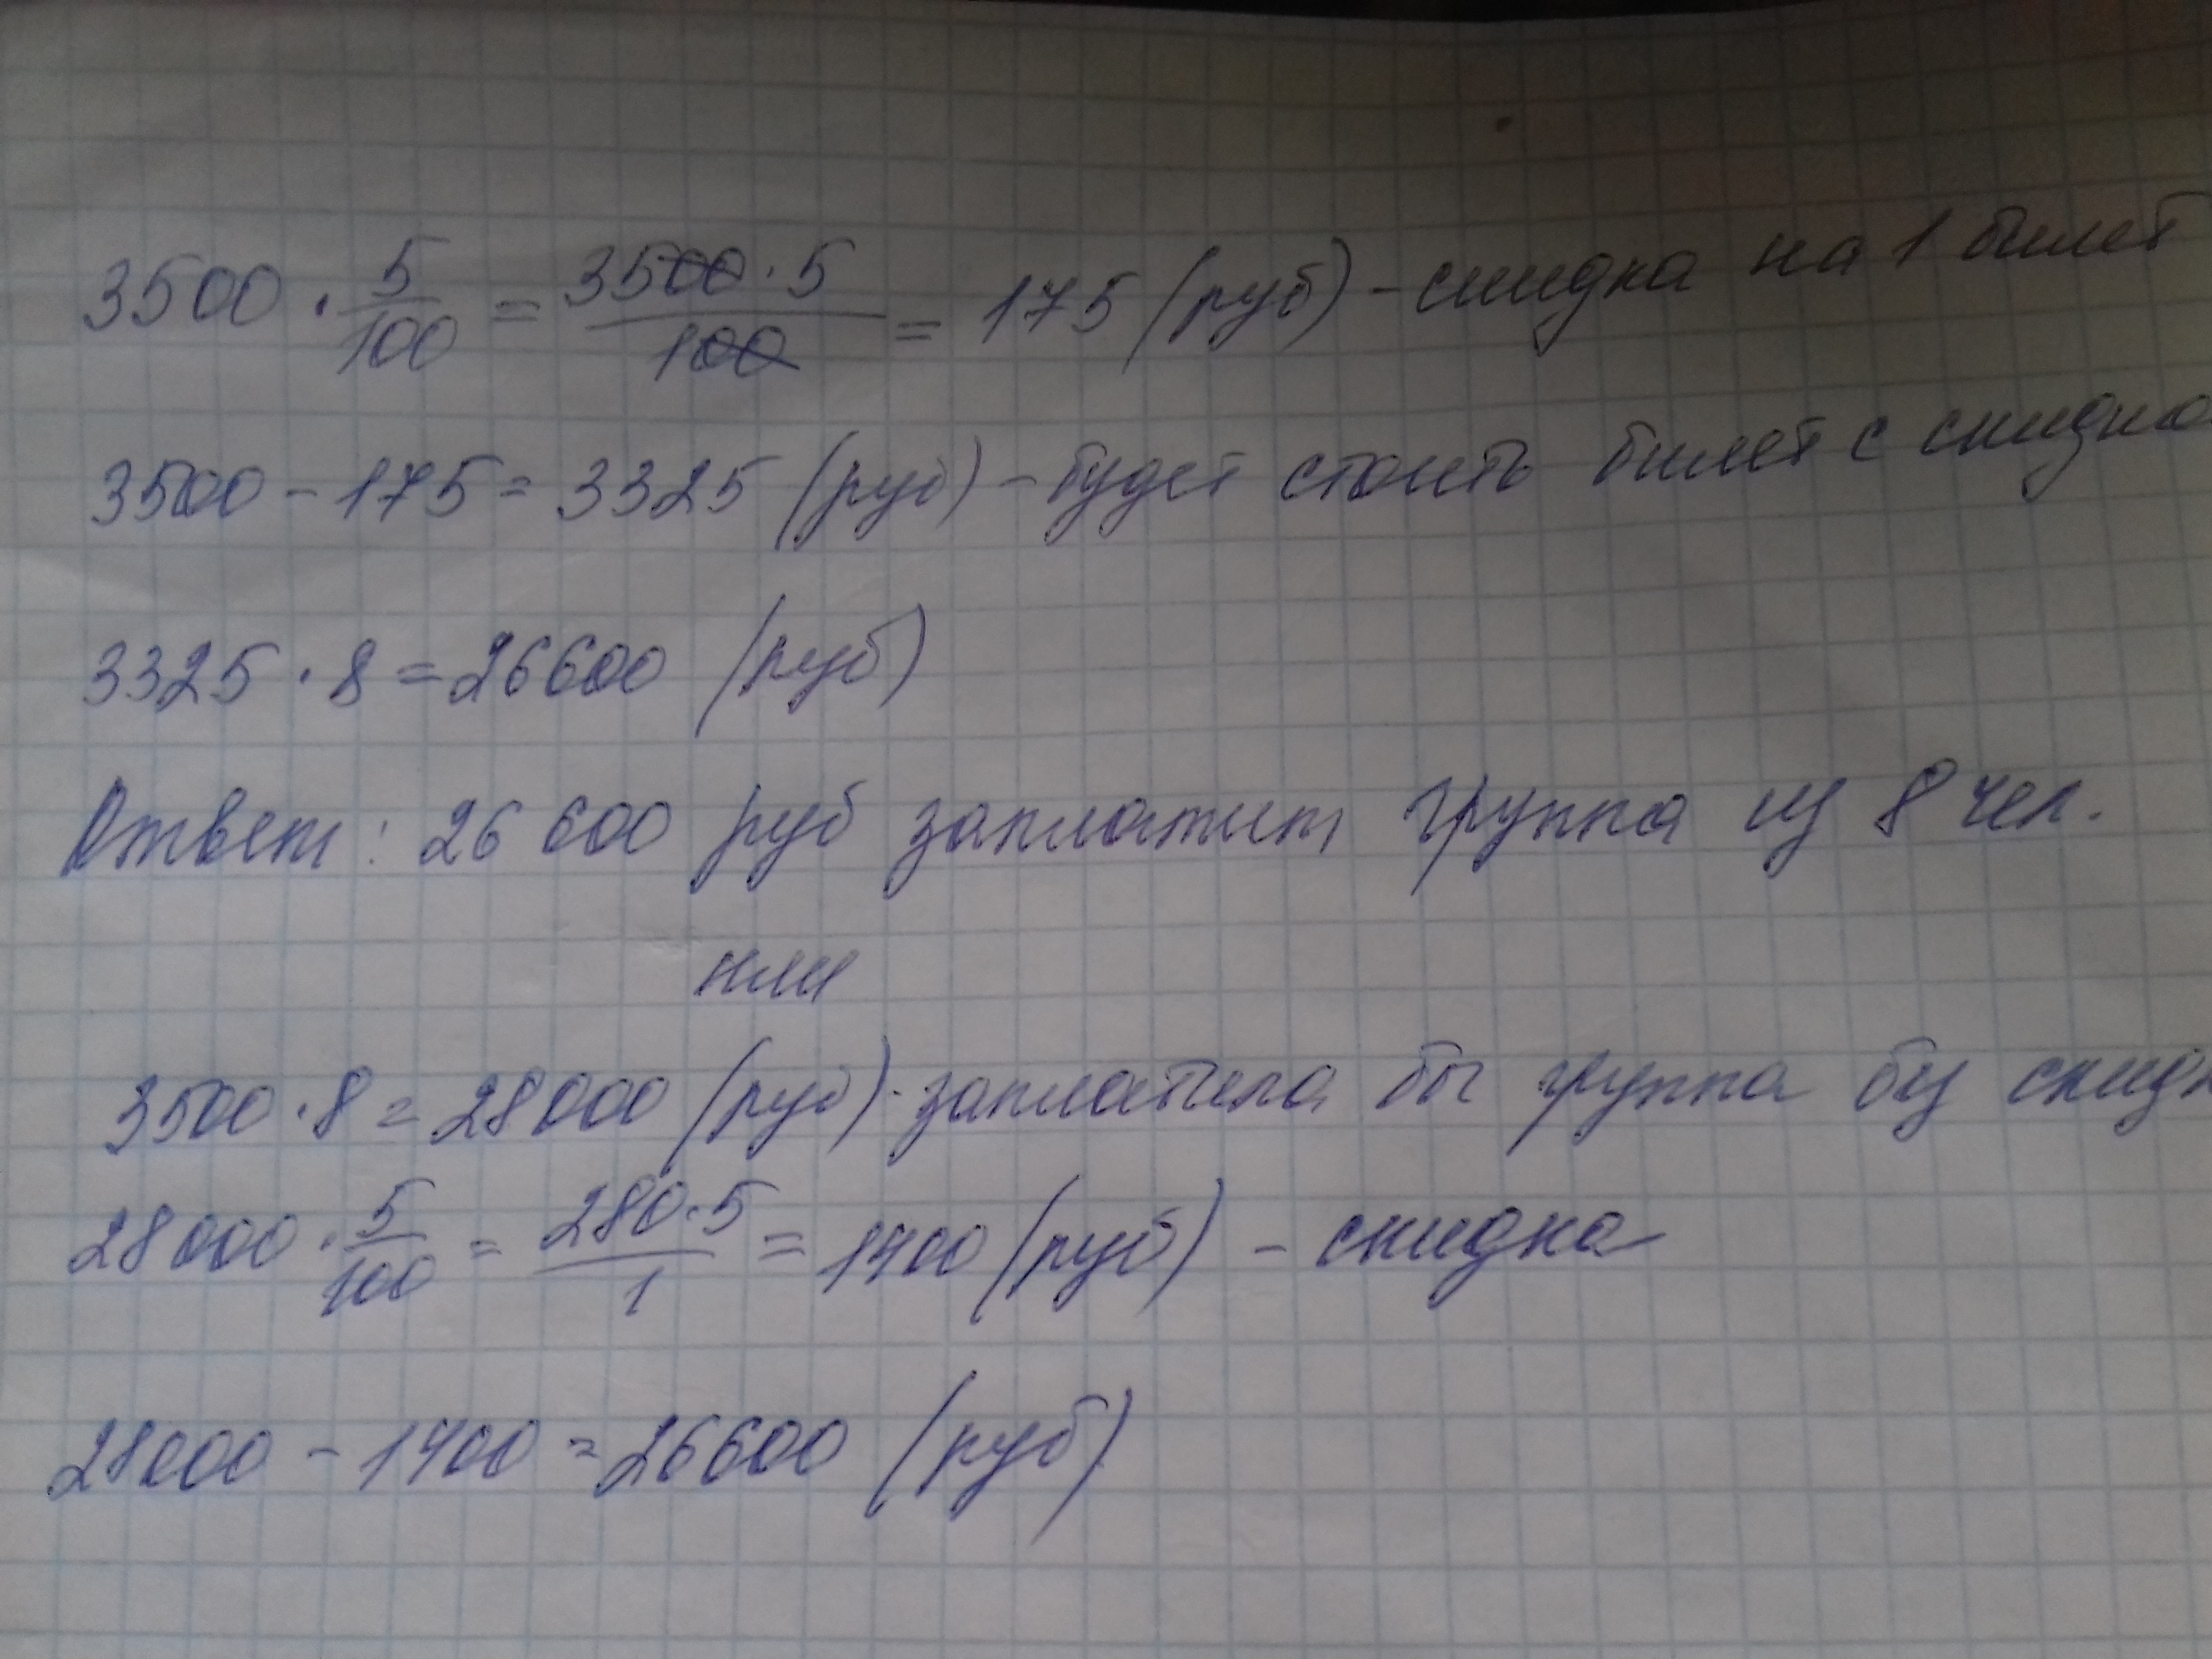 3500 · 5/100 = 3500 · 5/100 = 175 (руб) - скидка на 1 билет
3500 - 175 = 3325 (руб) - будет стоить билет с скидко
3325 · 8 = 26600 (руб)
Ответ: 26 600 руб заплатит группа из 8 чел.
или
3500 · 8 = 28000 (руб) - заплатила бы группа бз скидк
28000 · 5/100 = 280 · 5/1 = 1400 (руб) - скидка
28000 - 1400 = 26600 (руб)